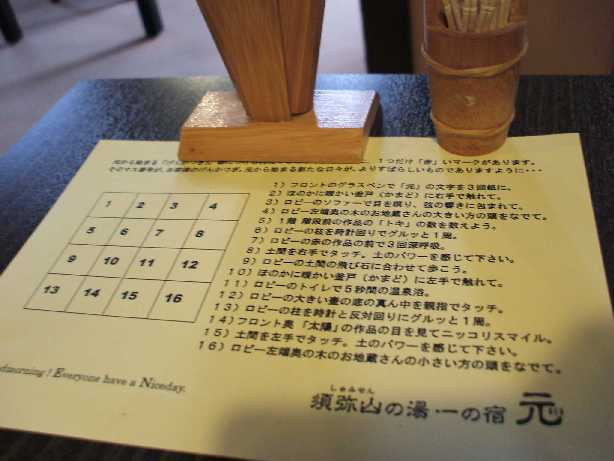 1つだけ「赤」いマークがあります。
元から始まる新たな日々が、よりすばらしいものでありますように・・・
1 2 3 4
5 6 7 8
9 10 11 12
13 14 15 16
1）フロントのグラスペンで「元」の文字を3回紙に。
2）ほのかに暖かい釜戸（かまど）に右手で触れて。
3）ロビーのソファーで目を瞑り、弦の響きに包まれて。
4）ロビー左端奥の木のお地蔵さんの大きい方の頭をなでて。
5）1階 階段前の作品の「トキ」の数を数えよう。
6）ロビーの柱を時計回りでグルッと1周。
7）ロビーの赤の作品の前で3回深呼吸。
8）土間を右手でタッチ。土のパワーを感じて下さい。
9）ロビーの土間の飛び石に合わせて歩こう。
10）ほのかに暖かい釜戸（かまど）に左手で触れて。
11）ロビーのトイレで5秒間の温泉浴。
12）ロビーの大きい壷の底の真ん中を親指でタッチ。
13）ロビーの柱を時計と反対回りにグルッと1周。
14）フロント奥「太陽」の作品の目を見てニッコリスマイル。
15）土間を左手でタッチ。土のパワーを感じて下さい。
16）ロビー左端奥の木のお地蔵さんの小さい方の頭をなでて。
dmorning ! Everyone have a Niceday.
しゅみせん
須弥山の湯・一の宿 元